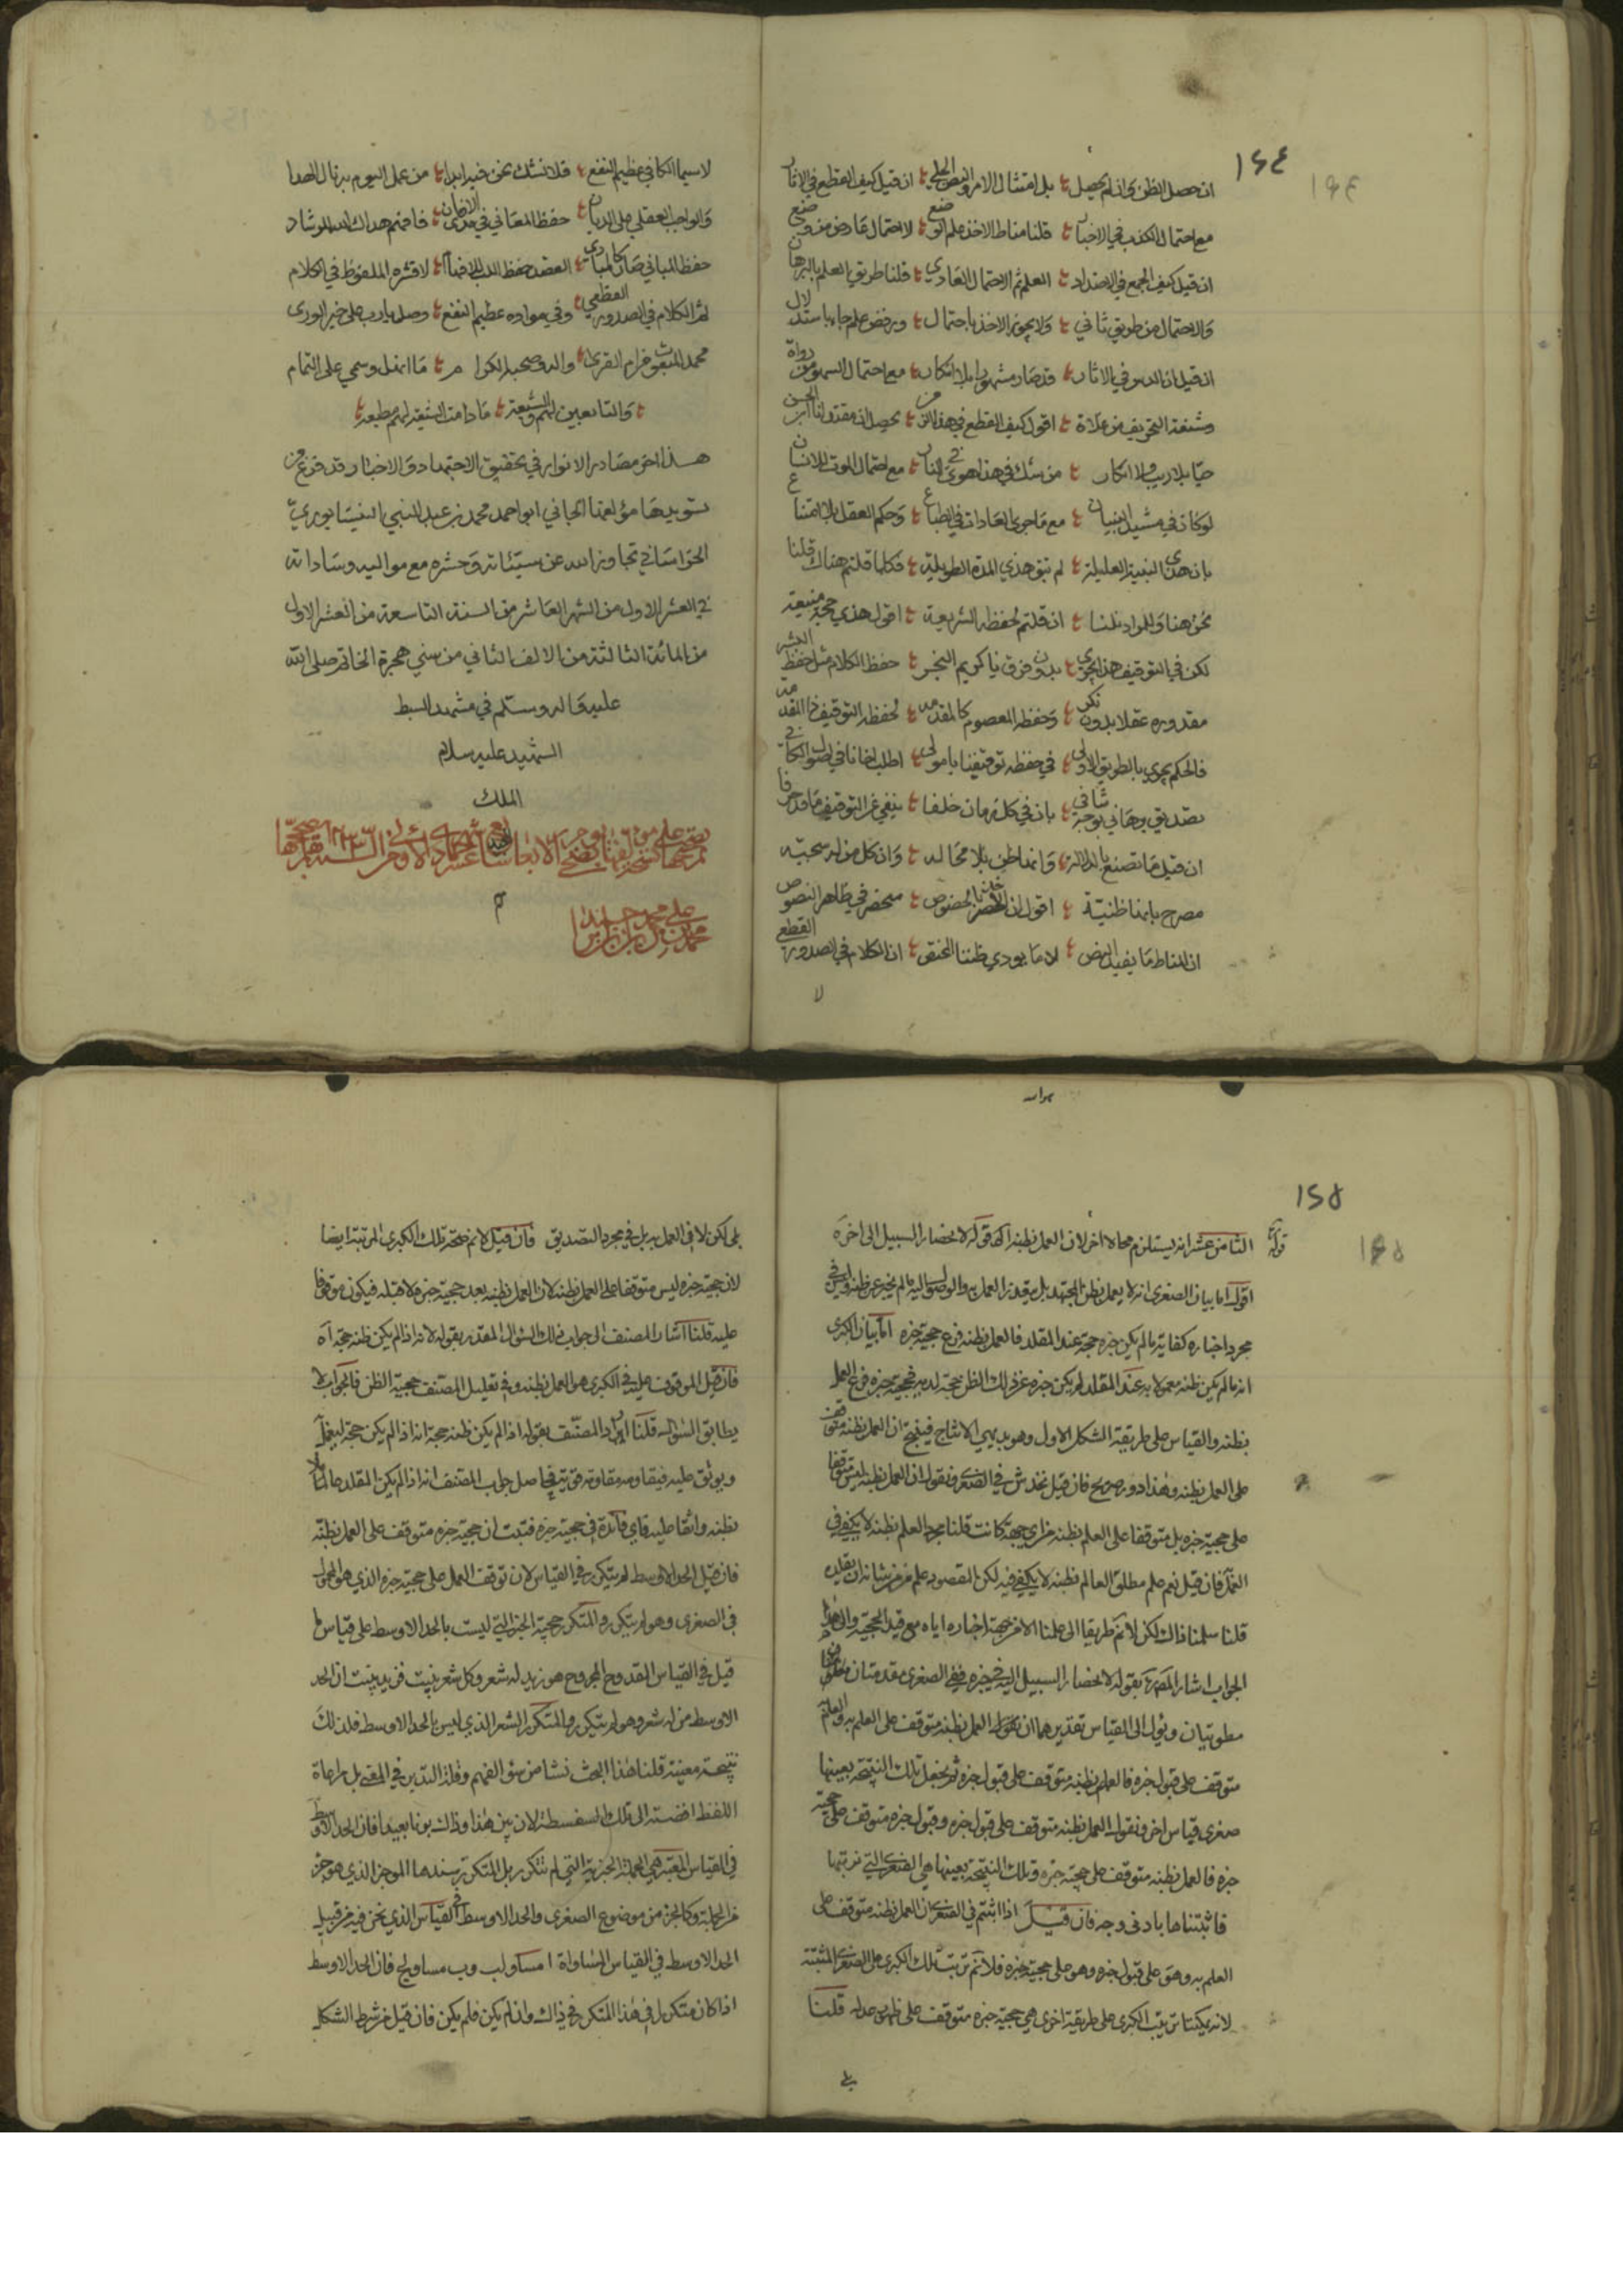 ١٤٤
ان حصل الظن وان لم يحصل بل امتثال الامر والنص الجلي ان قيل كيف القطع في الاثار
مع احتمال الكذب في الاخبار قلنا مناط الاخذ علم لو وضع لا احتمال عارض من وضع
ان قيل كيف الجمع في الاضداد العلم ثم الاحتمال العادي قلنا طريق العلم بالبرهان
والاحتمال من طريق ثاني ولا يجوز الاخذ باحتمال ورفض علم جاء باستدلال
ان قيل ان الدس في الاثار قد صار مشهورا بلا انكار مع احتمال السهو من رواة
وشنعة التحريف من غلاة اقول كيف القطع في هذا الزمن يحصل ان مقتدانا ابن الحسن
حيا بلا ريب ولا انكار من شك في هذا هوى في النار مع احتمال الموت للانسان
لو كان في مشيد البنيان مع ما جرى العادات في الطباع وحكم العقل بلا امتناع
بان هذي البنية العليلة لم تبق هذي المدة الطويلة فكلما قلتم هناك قلنا
نحن هنا وللمراد نلنا ان قلتم لحفظه الشريعة اقول هذي حجة منيعة
لكن في التوقيف هذا يجري بدون فرق يا كريم النجر حفظ الكلام مثل حفظ البشر
مقدوره عقلا بدون نكر وحفظه المعصوم كالمقدمه لحفظه التوقيف ذا المقدمه
فالحكم يجري بالطريق الاولى في حفظه توقيفنا يا مولى اطلب اخانا في اصول الكافي
تصديق برهاني بوجه شافي بان في كل زمان خلفا ينفي عن التوقيف ما قد حرفا
ان قيل ما تصنع بالدلالة وانها ظن بلا محاله وان كل من له سجيه
مصرح بانها ظنية اقول ان الاخذ بالخصوص منحصر في ظاهر النصوص
ان المناط ما يفيد النص لا ما يودي ظننا المختص ان الكلام في الصدور القطعي
لا
لا سيما الكافي عظيم النفع قلا نشك نحن فيه ابدا من عمل اليوم به نال الهدا
والواجب العقلي على الديان حفظ المعاني في مدى الازمان فافهم هداك الله للرشاد
حفظ المباني صار كالمبادي القصد حفظ اللب لا قشره الملفوظ في الكلام
ثم الكلام في الصدور القطعي وفي مواده عظيم النفع وصل يا رب على خير الورى
محمد المبعوث في ام القرى واله وصحبه الكرام ما انهل وسمي على التمام
والتابعين لهم والشيعة ما دامت الشيعة لهم مطيعه
هذا اخر مصادر الانوار في تحقيق الاجتهاد والاخبار وقد فرغ من
تسويدها مؤلفها الجاني ابو احمد محمد بن عبد النبي النيسابوري
الخراساني تجاوز الله عن سيئاته وحشره مع مواليه وساداته
في العشر الاول من الشهر العاشر من السنة التاسعة من العشر الاول
من المائة الثالثة من الالف الثاني من سني هجرة الخاتم صلى الله
عليه واله وسلم في مشهد السبط
الشهيد عليه سلام
الملك
تم
١٤٥
قوله الثامن عشر انه يستلزم محالا اخر لان العمل بظنه اه قوله لانحصار السبيل الى اخره
اقول اما بيان الصغرى انه لا يعمل بظن المجتهد بل يتعذر العمل به والوصول اليه ما لم يخبر عن ظنه وليس في
مجرد اخباره كفاية ما لم يكن خبره حجة عند المقلد فالعمل بظنه فرع حجية خبره اما بيان الكبرى
انه ما لم يكن ظنه معمولا به عند المقلد لم يكن خبره عن ذلك الظن حجة لديه فحجية خبره فرع العمل
بظنه والقياس على طريقة الشكل الاول وهو بديهي الانتاج فينتج ان العمل بظنه متوقف
على العمل بظنه وهذا دور صريح فان قيل نخدش في الصغرى ونقول ان العمل بظنه ليس متوقفا
على حجية خبره بل متوقفا على العلم بظنه من اي جهة كانت قلنا مجرد العلم بظنه لا يكفي في
العمل فان قيل نعم علم مطلق العالم بظنه لا يكفي فيه لكن المقصود علم من من شانه ان يقلده
قلنا سلمنا ذاك لكن لا نم طريقا الى علمنا الا من جهة اخباره اياه مع قيد الحجية والى هذا
الجواب اشار المص ره بقوله لانحصار السبيل اليه في خبره ففي الصغرى مقدمتان
مطويتان ويؤل الى القياس تقديرهما ان نقول العمل بظنه متوقف على العلم به والعلم به
متوقف على قبول خبره فالعلم بظنه متوقف على قبول خبره ثم نجعل تلك النتيجة بعينها
صغرى قياس اخر ونقول العمل بظنه متوقف على قبول خبره وقبول خبره متوقف على حجية
خبره فالعمل بظنه متوقف على حجية خبره وتلك النتيجة بعينها هي الصغرى التي
فاثبتناها بادنى وجه فان قيل اذا اثبتم في الصغرى ان العمل بظنه متوقف على
العلم به وهو على قبول خبره وهو على حجية خبره فلا نم ترتب تلك الكبرى على الصغرى المثبتة
لانه يمكننا ترتيب الكبرى على طريقة اخرى هي حجية خبره متوقف على ظهور عدله قلنا
بلى
بلى لكن لا في العمل به بل في مجرد التصديق فان قيل لا نم صحة تلك الكبرى المرتبة ايضا
لان حجية خبره ليس متوقفا على العمل بظنه لان العمل بظنه بعد حجية خبره لا قبله فيكون متوقفا
عليه قلنا اشار المصنف الى جواب ذلك السؤال المقدر بقوله لانه اذا لم يكن ظنه حجة اه
فان قيل الموقوف عليه في الكبرى هو العمل بظنه وفي تعليل المصنف حجية الظن فالجواب لا
يطابق السؤال قلنا اراد المصنف بقوله اذا لم يكن ظنه حجة انه اذا لم يكن حجة ليعمل
ويوثق عليه فيقاومه مقاومة قوية فحاصل جواب المصنف انه اذا لم يكن المقلد عاملا
بظنه واثقا عليه فاي فائدة في حجية خبره فثبت ان حجية خبره متوقف على العمل بظنه
فان قيل الحد الاوسط لم يتكرر في القياس لان توقف العمل على حجية خبره الذي هو المحمول
في الصغرى وهو لم يتكرر والمتكرر حجية الخبر التي ليست بالحد الاوسط على قياس ما
قيل في القياس المقدوح المجروح هو زيد له شعر وكل شعر ينبت فزيد ينبت ان الحد
الاوسط من له شعر وهو لم يتكرر والمتكرر الشعر الذي ليس بالحد الاوسط فلذلك
نتيجة معينة قلنا هذا البحث نشا من سؤ الفهم وقلة التدبر في المعنى بل مراعاة
اللفظ افضت الى تلك السفسطة لان بين هذا وذاك بونا بعيدا فان الحد الاوسط
في القياس المعتبر هي الجملة الخبرية التي لم تتكرر بل المتكرر سندها الموخر الذي هو جزء
من الجملة وكالجزء من موضوع الصغرى والحد الاوسط في القياس الذي نحن فيه من قبيل
الحد الاوسط في القياس المساواة ا مساو لب وب مساو لج فان الحد الاوسط
اذا كان متكررا في هذا المتكرر في ذاك وان لم يكن فلم يكن فان قيل من شرط الشكل